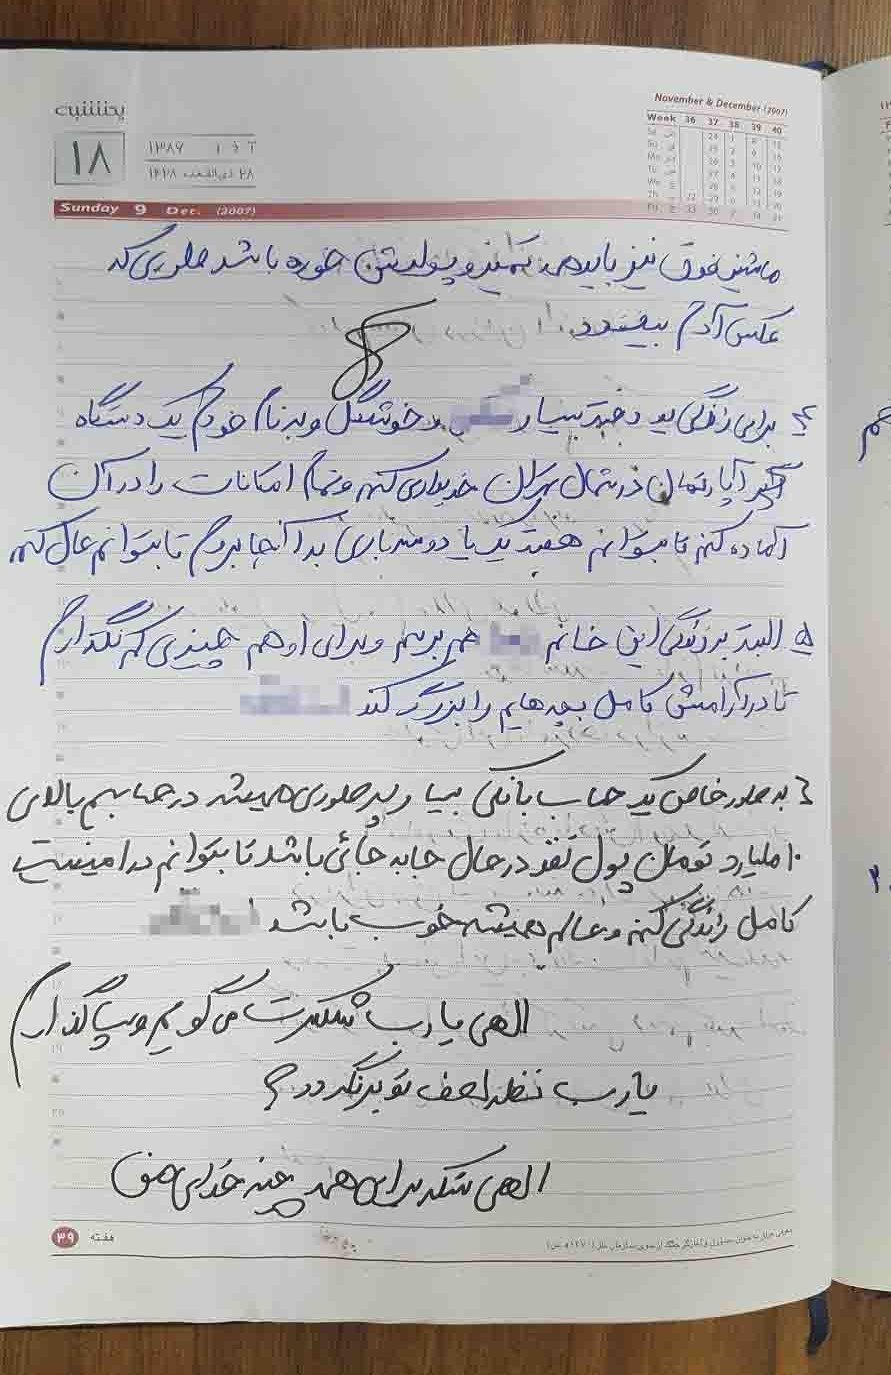 یکشنبه
۱۸
آذر ۱۳۸۶
۲۸ ذی‌القعده ۱۴۲۸
November & December (2007)
Week 36 37 38 39 40
Sunday 9 Dec. (2007)
ماشین فوق نیز باید همه تمیز و پولیش خورده باشد طوری که
عکس آدم بیفتد در
۴ برای زندگی یه دختر بسیار و خوشگل و بنام خودم یک دستگاه
آپارتمان در شمال تهران خریداری کنم و تمام امکانات را در آن
آماده کنم تا بتوانم هفته یک یا دو سه باری به آنجا بروم تا بتوانم حال کنم
۵ البته به زندگی این خانم هم برسم و برای او هم چیزی کم نگذارم
تا در آرامش کامل بچه هایم را بزرگ کند
۶ به طور خاص یک حساب بانکی بسیار پر طوری همیشه در حسابم بالای
۱۰ میلیارد تومان پول نقد در حال جابه جائی باشد تا بتوانم در امنیت
کامل زندگی کنم و حالم همیشه خوب باشد
الهی یا رب شکرت می گویم و سپاگذارم
یا رب نظر لطف تو برنگردد
الهی شکر برای همه چیز خدای من
هفته ۳۹